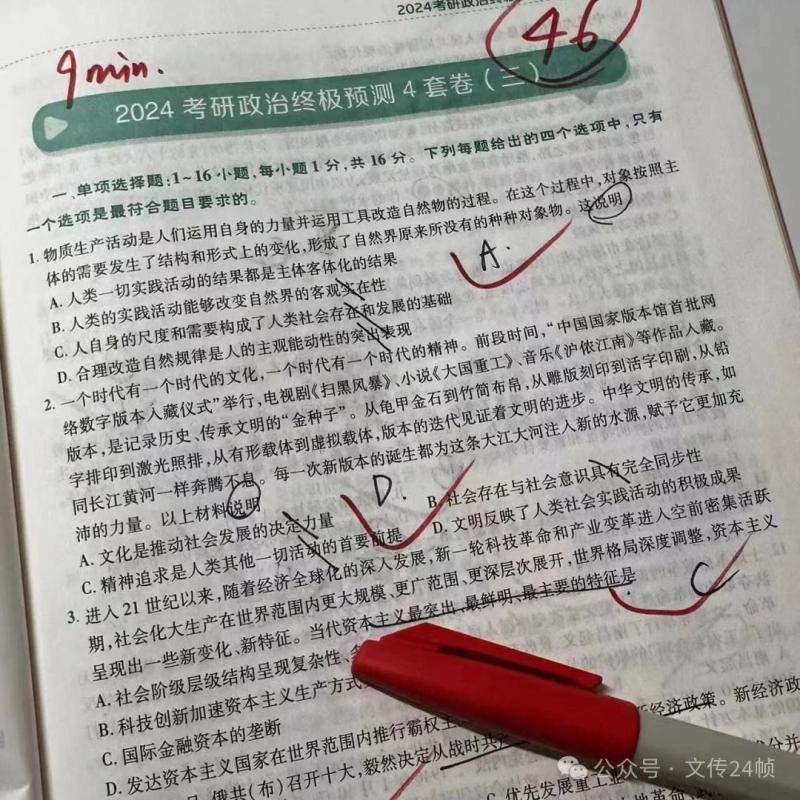 2024考研政治终极
46
9min.
2024考研政治终极预测4套卷(三)
一、单项选择题:1~16小题,每小题1分,共16分。下列每题给出的四个选项中,只有
一个选项是最符合题目要求的。
1. 物质生产活动是人们运用自身的力量并运用工具改造自然物的过程。在这个过程中,对象按照主
体的需要发生了结构和形式上的变化,形成了自然界原来所没有的种种对象物。这说明
A. 人类一切实践活动的结果都是主体客体化的结果
A.
B. 人类的实践活动能够改变自然界的客观实在性
C. 人自身的尺度和需要构成了人类社会存在和发展的基础
D. 合理改造自然规律是人的主观能动性的突出表现
2. 一个时代有一个时代的文化,一个时代有一个时代的精神。前段时间,“中国国家版本馆首批网
络数字版本入藏仪式”举行,电视剧《扫黑风暴》、小说《大国重工》、音乐《沪侬江南》等作品入藏。
版本,是记录历史、传承文明的“金种子”。从龟甲金石到竹简布帛,从雕版刻印到活字印刷,从铅
字排印到激光照排,从有形载体到虚拟载体,版本的迭代见证着文明的进步。中华文明的传承,如
同长江黄河一样奔腾不息。每一次新版本的诞生都为这条大江大河注入新的水源,赋予它更加充
沛的力量。以上材料说明
D.
A. 文化是推动社会发展的决定力量 B. 社会存在与社会意识具有完全同步性
C. 精神追求是人类其他一切活动的首要前提 D. 文明反映了人类社会实践活动的积极成果
3. 进入21世纪以来,随着经济全球化的深入发展,新一轮科技革命和产业变革进入空前密集活跃
期,社会化大生产在世界范围内更大规模、更广范围、更深层次展开,世界格局深度调整,资本主义
呈现出一些新变化、新特征。当代资本主义最突出、最鲜明、最主要的特征是
C
A. 社会阶层级结构呈现复杂性、
B. 科技创新加速资本主义生产方式
C. 国际金融资本的垄断
D. 发达资本主义国家在世界范围内推行霸权主
俄共(布)召开十大,毅然决定从战时共 经济政策。新经济政
C. 优先发展重工业
公众号·文传24帧